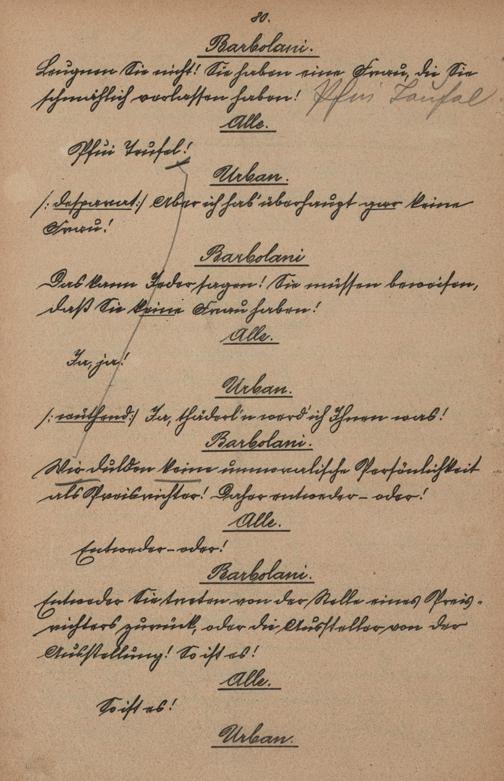 80.
Barbolani.
Leugnen Sie nicht! Sie haben eine Frau, die Sie
schmählich verlassen haben! Pfui Teufel
Alle.
Pfui Teufel!
Urban.
/: desperat :/ Aber ich hab' überhaupt gar keine
Frau!
Barbolani
Das kann Jeder sagen! Sie müssen beweisen,
daß Sie keine Frau haben!
Alle.
Ja, ja!
Urban.
/: wüthend :/ Ja, thäderl'n werd' ich Ihnen was!
Barbolani.
Wir dulden keine unmoralische Persönlichkeit
als Preisrichter! Daher entweder – oder!
Alle.
Entweder – oder!
Barbolani.
Entweder Sie treten von der Stelle eines Preis-
richters zurück, oder die Aussteller von der
Ausstellung! So ist es!
Alle.
So ist es!
Urban.